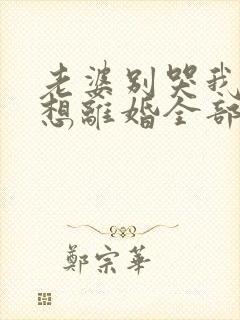 老婆别哭我
想離婚全部
鄭宗華